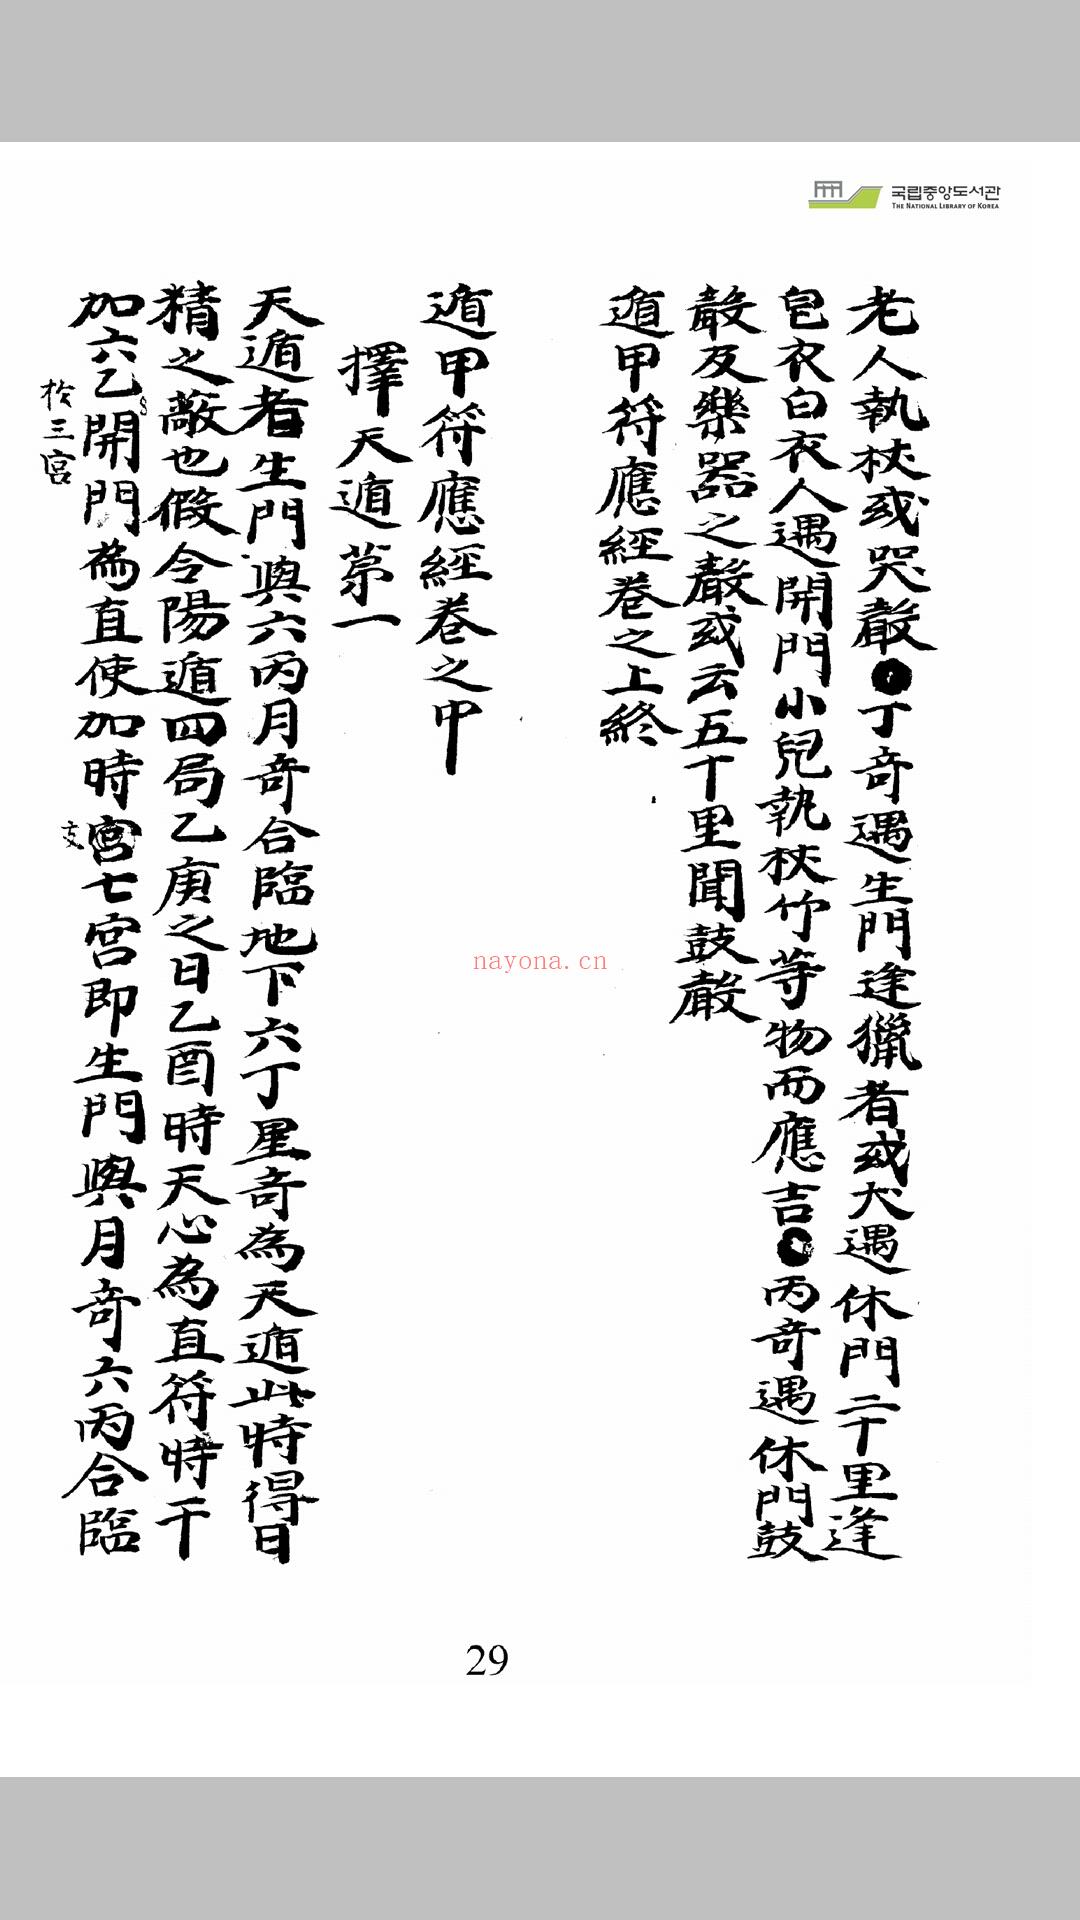 국립중앙도서관
THE NATIONAL LIBRARY OF KOREA
老人執杖或哭聲丁奇遇生門逢獵者或犬遇休門二十里逢
皀衣白衣人遇開門小兒執杖竹等物而應吉丙奇遇休門鼓
聲及樂器之聲或云五十里聞鼓聲
遁甲符應經卷之上終
遁甲符應經卷之中
擇天遁第一
天遁者生門與六丙月奇合臨地下六丁星奇為天遁此時得日
精之蔽也假令陽遁四局乙庚之日乙酉時天心為直符時干
加六乙開門為直使加時宮七宮即生門與月奇六丙合臨
於三宮
支
nayona.cn
29